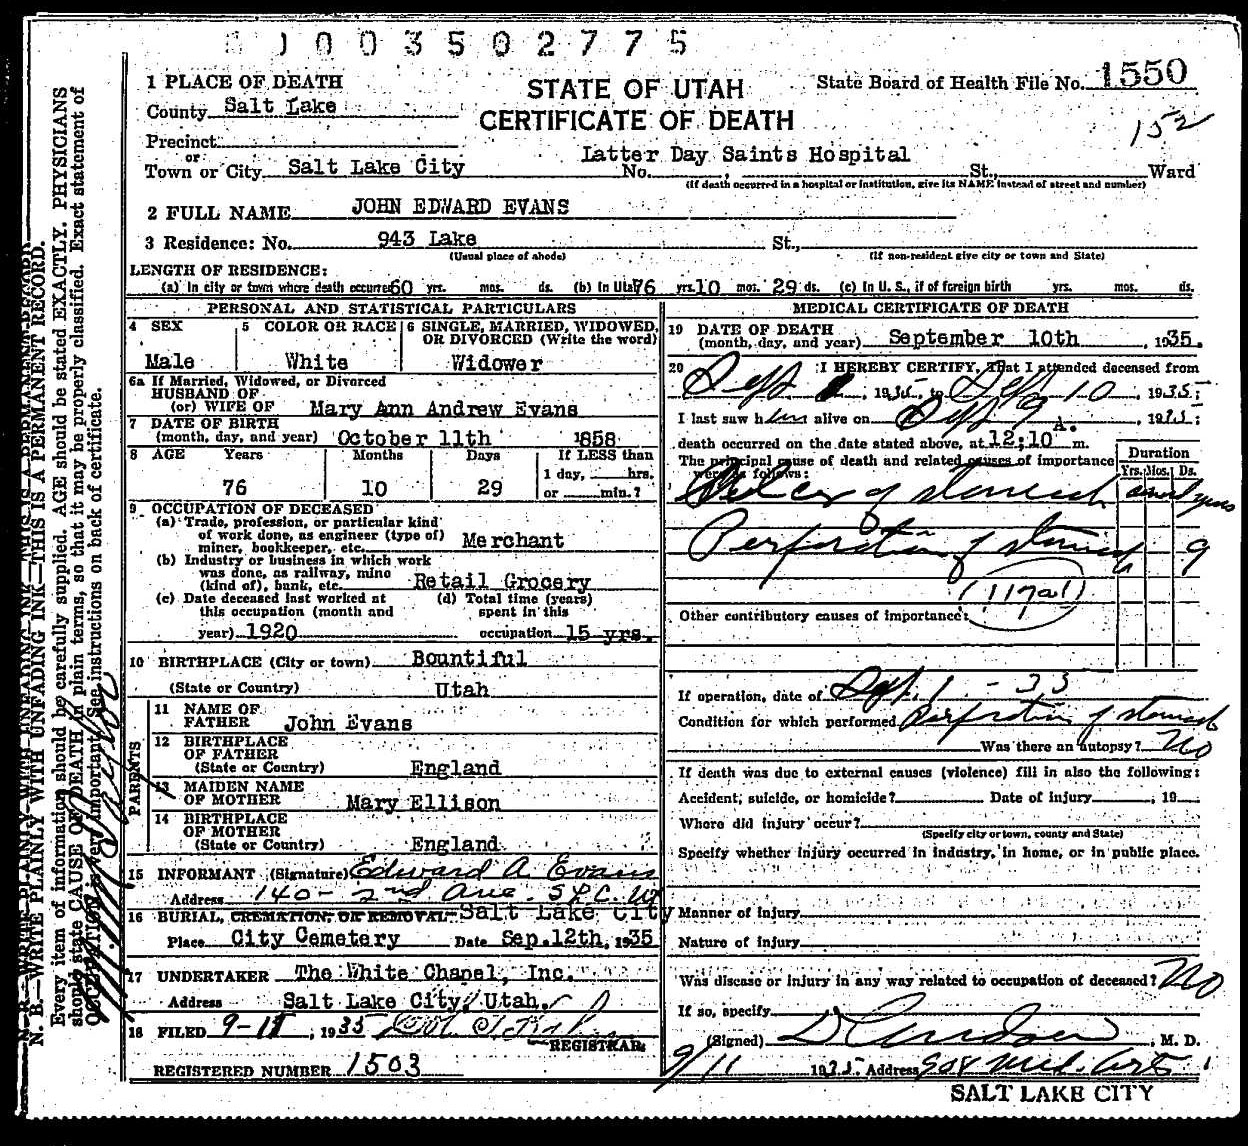 0 0 3 5 0 2 7 7 5
1 PLACE OF DEATH
STATE OF UTAH
State Board of Health File No. 1550
County Salt Lake
CERTIFICATE OF DEATH
152
Precinct
or
Town or City Salt Lake City
Latter Day Saints Hospital
No. , St., Ward
(If death occurred in a hospital or institution, give its NAME instead of street and number)
2 FULL NAME JOHN EDWARD EVANS
3 Residence: No. 943 Lake St.,
(Usual place of abode) (If non-resident give city or town and State)
LENGTH OF RESIDENCE:
(a) In city or town where death occurred 60 yrs. mos. ds. (b) In Utah 76 yrs. 10 mos. 29 ds. (c) In U. S., if of foreign birth yrs. mos. ds.
PERSONAL AND STATISTICAL PARTICULARS
4 SEX
Male
5 COLOR OR RACE
White
6 SINGLE, MARRIED, WIDOWED, OR DIVORCED (Write the word)
Widower
6a If Married, Widowed, or Divorced
HUSBAND OF
(or) WIFE OF Mary Ann Andrew Evans
7 DATE OF BIRTH
(month, day, and year) October 11th 1858
8 AGE Years Months Days If LESS than
1 day, hrs.
76 10 29 or min.?
9 OCCUPATION OF DECEASED
(a) Trade, profession, or particular kind
of work done, as engineer (type of)
miner, bookkeeper, etc. Merchant
(b) Industry or business in which work
was done, as railway, mine
(kind of), bank, etc. Retail Grocery
(c) Date deceased last worked at
this occupation (month and
year) 1920
(d) Total time (years)
spent in this
occupation 15 yrs.
10 BIRTHPLACE (City or town) Bountiful
(State or Country) Utah
PARENTS
11 NAME OF
FATHER John Evans
12 BIRTHPLACE
OF FATHER
(State or Country) England
13 MAIDEN NAME
OF MOTHER Mary Ellison
14 BIRTHPLACE
OF MOTHER
(State or Country) England
15 INFORMANT (Signature) Edward A Evans
Address 140 - 2nd Ave. S L C. Ut
16 BURIAL, CREMATION, OR REMOVAL Salt Lake City
Place City Cemetery Date Sep. 12th, 1935
17 UNDERTAKER The White Chapel, Inc.
Address Salt Lake City, Utah.
18 FILED 9-11, 1935
REGISTRAR
REGISTERED NUMBER 1503
MEDICAL CERTIFICATE OF DEATH
19 DATE OF DEATH
(month, day, and year) September 10th, 1935.
20 I HEREBY CERTIFY, That I attended deceased from
Sept , 1935 to Sept 10, 1935;
I last saw him alive on Sept 9, 1935;
death occurred on the date stated above, at 12:10 A. m.
The principal cause of death and related causes of importance
were as follows:
Duration
Yrs. Mos. Ds.
Ulcer of stomach several years
Perforation of stomach 9
(117a1)
Other contributory causes of importance:
If operation, date of Sept. 1 - 35
Condition for which performed Perforation of stomach
Was there an autopsy? No
If death was due to external causes (violence) fill in also the following:
Accident, suicide, or homicide? Date of injury , 19
Where did injury occur?
(Specify city or town, county and State)
Specify whether injury occurred in industry, in home, or in public place.
Manner of Injury
Nature of Injury
Was disease or injury in any way related to occupation of deceased? No
If so, specify
(Signed) , M. D.
9/11 1935 Address 908 Med. Arts
SALT LAKE CITY
N. B.—WRITE PLAINLY WITH UNFADING INK—THIS IS A PERMANENT RECORD.
Every item of information should be carefully supplied. AGE should be stated EXACTLY. PHYSICIANS
should state CAUSE OF DEATH in plain terms, so that it may be properly classified. Exact statement of
OCCUPATION is very important. See instructions on back of certificate.